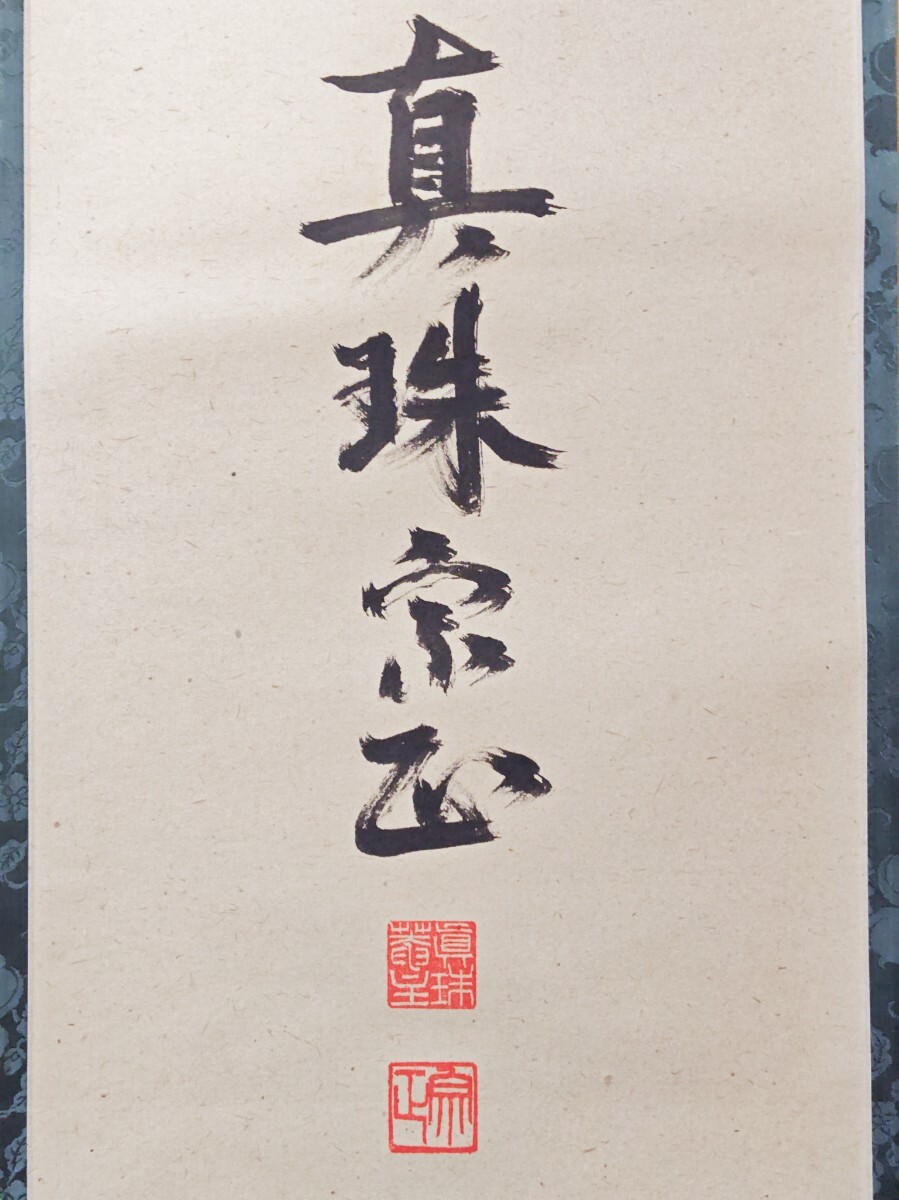 真珠宗正
眞珠菴主
宗正